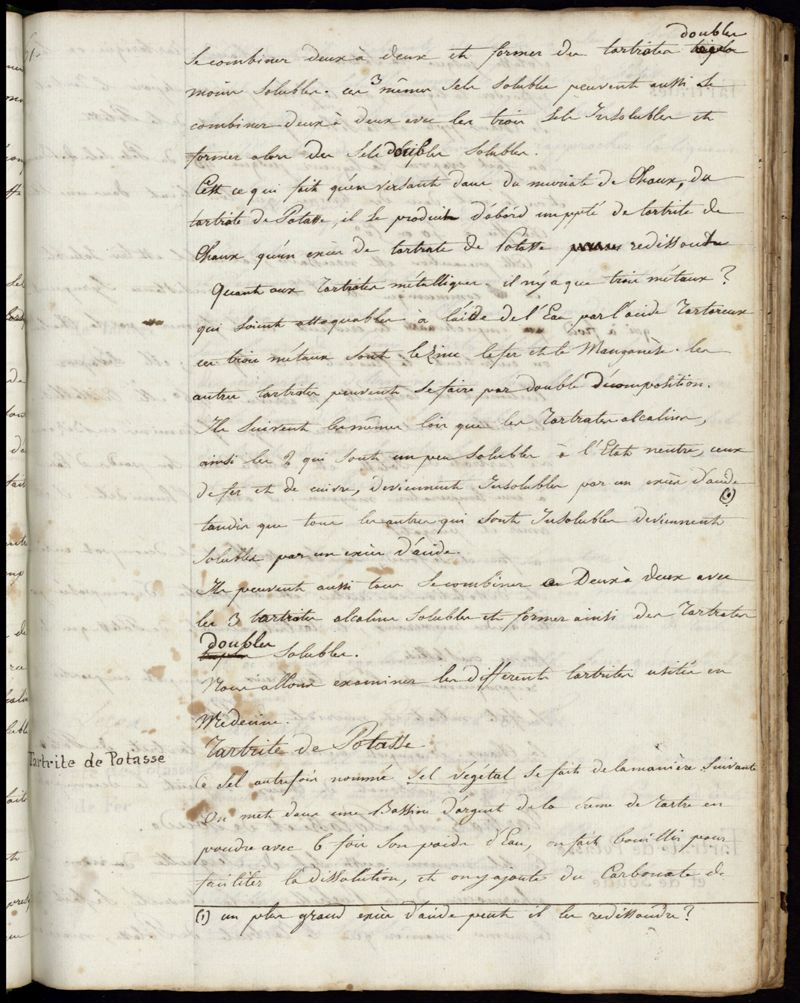 doubles
se combiner deux à deux et former des tartrates
moins solubles. ces 3 mêmes sels solubles peuvent aussi se
combiner deux à deux avec les trois sels Insolubles et
former alors des sels doubles solubles.
C'est ce qui fait qu'en versant dans du muriate de Chaux, du
tartrate de Potasse, il se produit d'abord un ppté de tartrite de
Chaux qu'un excès de tartrate de Potasse redissoudra
Quant aux Tartrates métalliques. il n'y a que trois métaux ?
qui soient attaquables à l'aide de l'Eau par l'acide Tartareux
ces trois métaux sont le Zinc le fer et le Manganèse. les
autres tartrates peuvent se faire par double décomposition.
Ils suivent les mêmes loix que les Tartrates alcalins,
ainsi les 2 qui sont un peu solubles à l'Etat neutre, ceux
de fer et de cuivre, deviennent Insolubles par un excès d'acide
(1)
tandis que tous les autres qui sont Insolubles deviennent
solubles par un excès d'acide.
Ils peuvent aussi tous se combiner Deux à deux avec
les 3 tartrates alcalins solubles et former ainsi des Tartrates
doubles
solubles.
Nous allons examiner les différents tartrites usités en
Médecine.
Tartrite de Potasse.
Tartrite de Potasse
Ce sel autrefois nommé sel végétal se fait de la manière suivante
On met dans une Bassine d'argent de la Crême de Tartre en
poudre avec 6 fois son poids d'Eau, on fait bouillir pour
faciliter la dissolution, et on y ajoute du Carbonate de
(1) un plus grand excès d'acide peut il les redissoudre ?